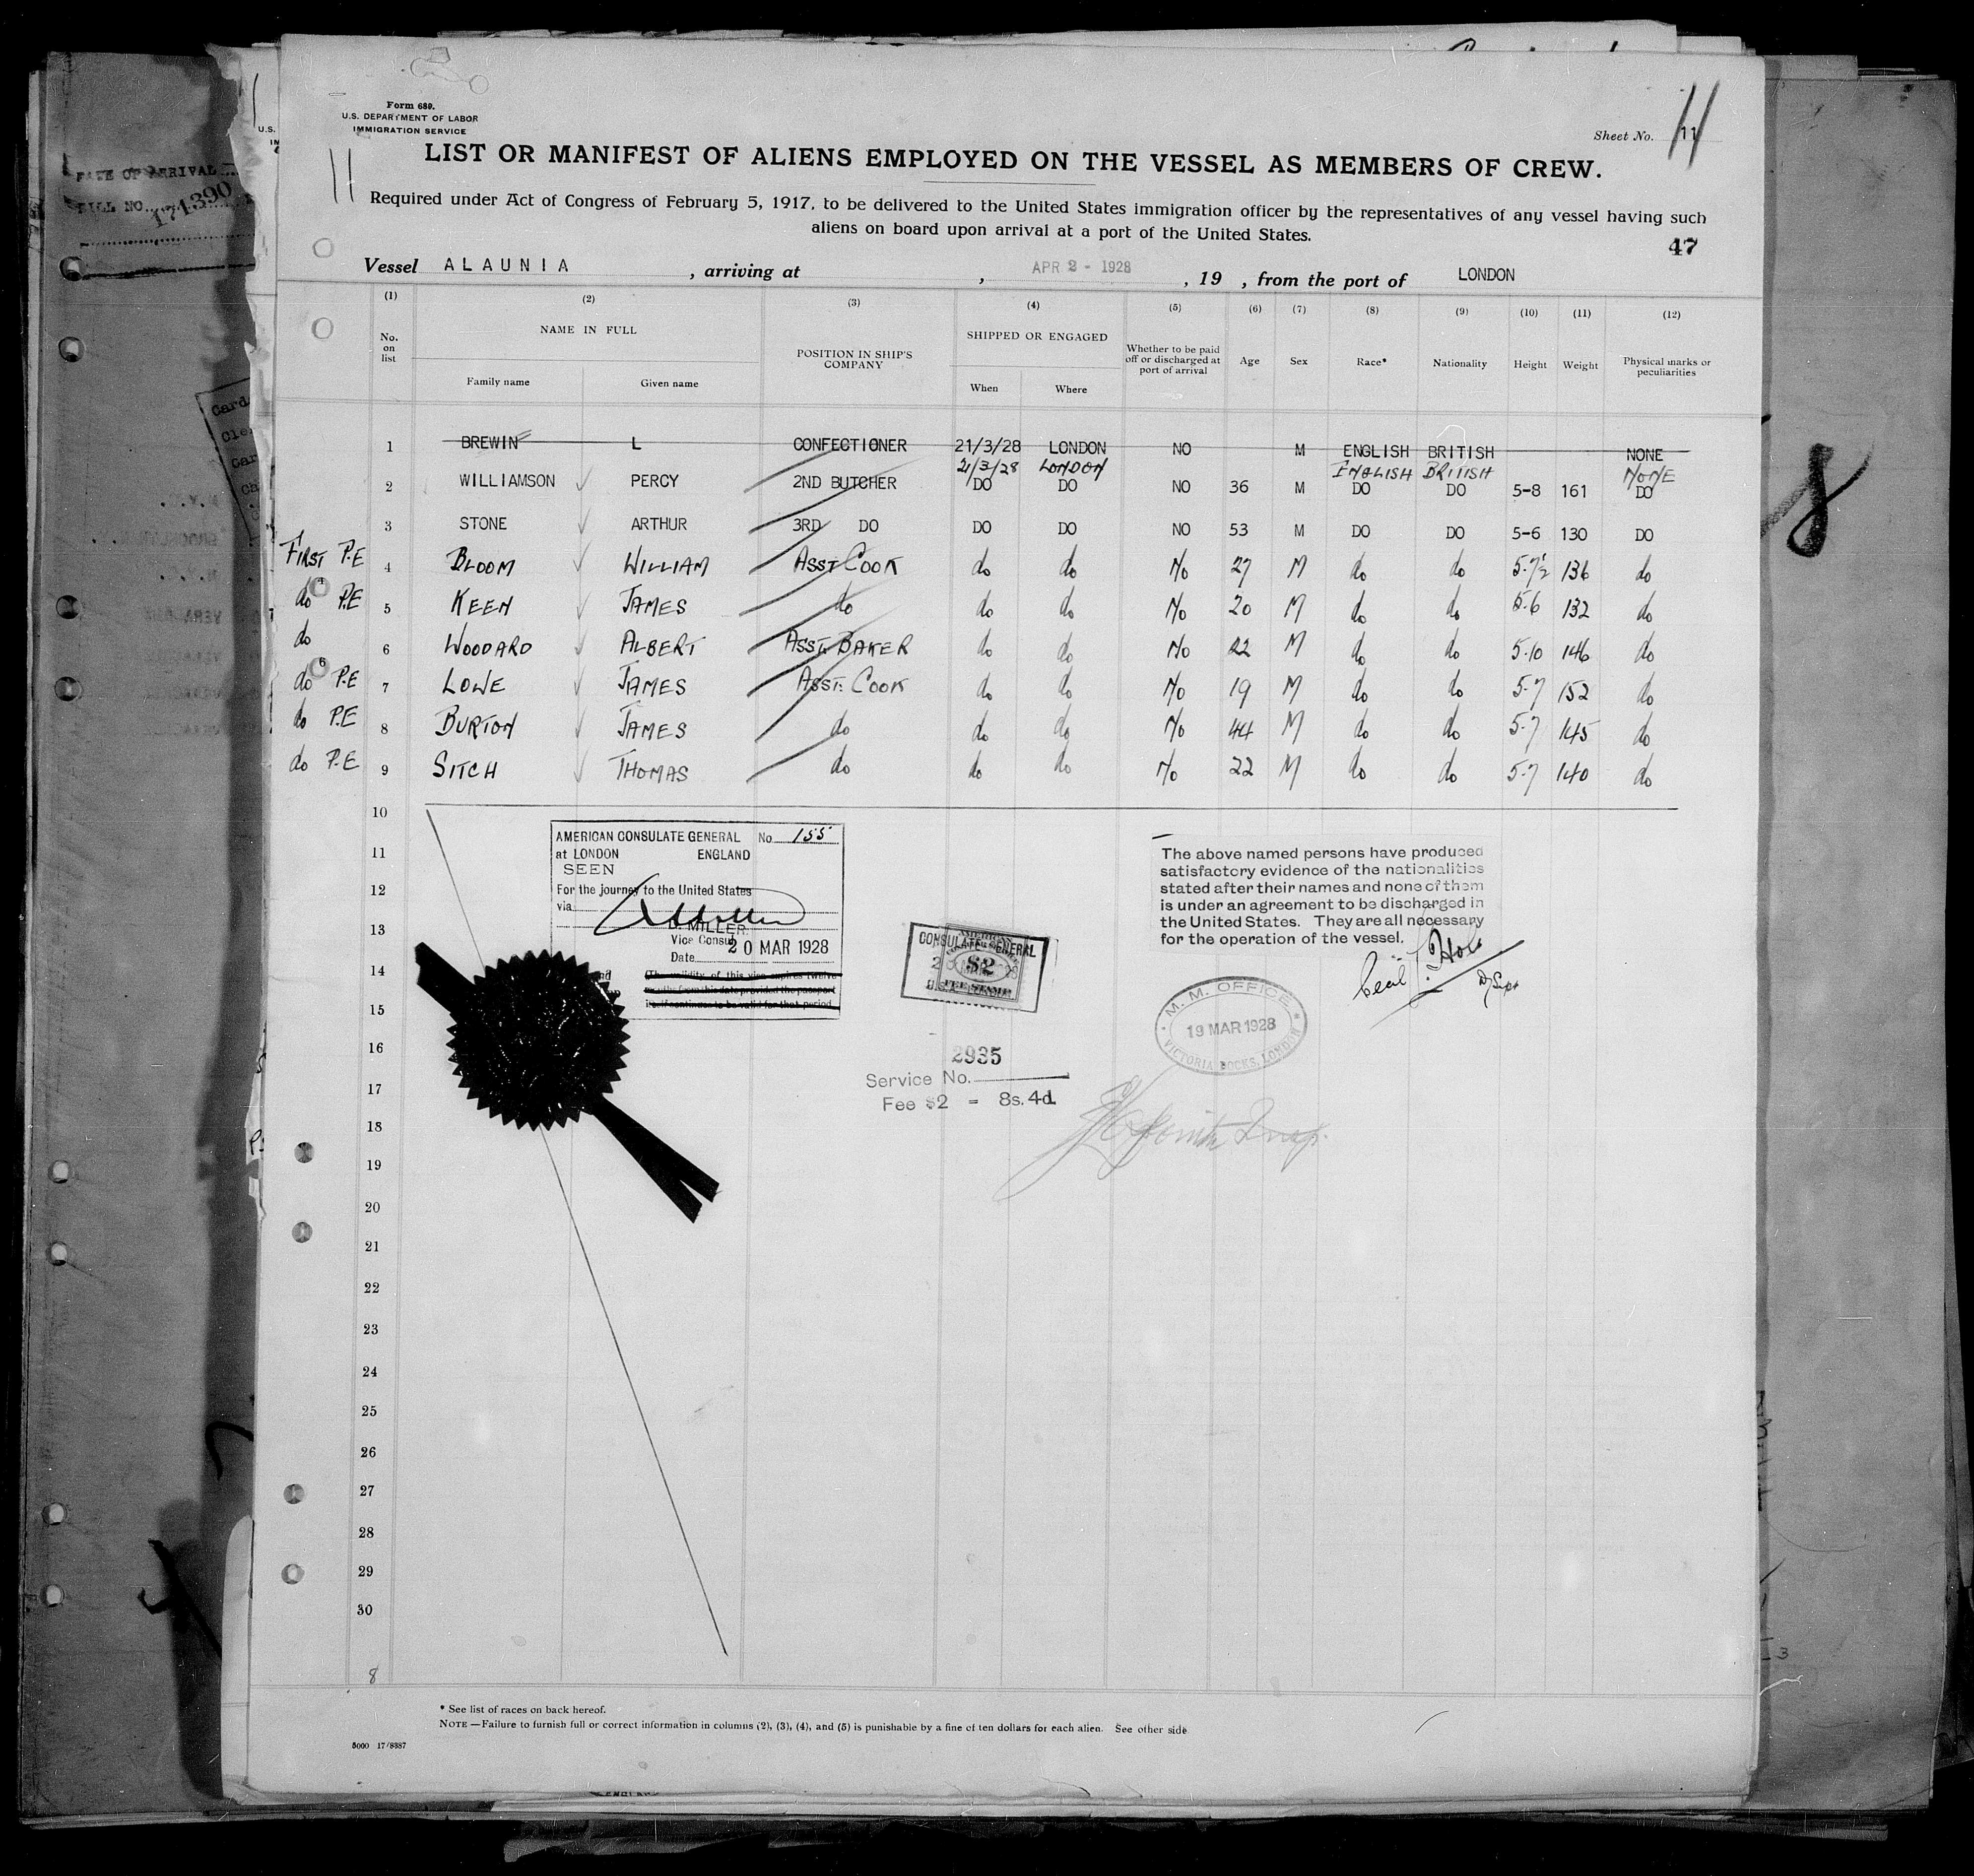 Form 689.
U.S. DEPARTMENT OF LABOR
IMMIGRATION SERVICE
Sheet No. 11
11
11
LIST OR MANIFEST OF ALIENS EMPLOYED ON THE VESSEL AS MEMBERS OF CREW.
Required under Act of Congress of February 5, 1917, to be delivered to the United States immigration officer by the representatives of any vessel having such
aliens on board upon arrival at a port of the United States.
47
Vessel ALAUNIA , arriving at , APR 2 - 1928 , 19 , from the port of LONDON
(1) (2) (3) (4) (5) (6) (7) (8) (9) (10) (11) (12)
No. on list NAME IN FULL POSITION IN SHIP'S COMPANY SHIPPED OR ENGAGED Whether to be paid off or discharged at port of arrival Age Sex Race* Nationality Height Weight Physical marks or peculiarities
Family name Given name When Where
1 BREWIN L CONFECTIONER 21/3/28 LONDON NO M ENGLISH BRITISH NONE
21/3/28 LONDON ENGLISH BRITISH NONE
2 WILLIAMSON PERCY 2ND BUTCHER DO DO NO 36 M DO DO 5-8 161 DO
3 STONE ARTHUR 3RD DO DO DO NO 53 M DO DO 5-6 130 DO
FIRST P.E 4 BLOOM WILLIAM ASST COOK do do No 27 M do do 5-7½ 136 do
do P.E 5 KEEN JAMES do do do No 20 M do do 5-6 132 do
do 6 WOODARD ALBERT ASST. BAKER do do No 22 M do do 5-10 146 do
do P.E 7 LOWE JAMES ASST. COOK do do No 19 M do do 5-7 152 do
do P.E 8 BURTON JAMES do do do No 44 M do do 5-7 145 do
do P.E 9 SITCH THOMAS do do do No 22 M do do 5-7 140 do
10
11
12
13
14
15
16
17
18
19
20
21
22
23
24
25
26
27
28
29
30
8
AMERICAN CONSULATE GENERAL No 155
at LONDON ENGLAND
SEEN
For the journey to the United States
via
D. MILLER.
Vice Consul
Date 20 MAR 1928
The validity of this visa expires twelve
months from this date provided the passport
itself continues to be valid for that period.
CONSULATE GENERAL
$2
FEE STAMP
2935
Service No.
Fee $2 = 8s. 4d.
The above named persons have produced
satisfactory evidence of the nationalities
stated after their names and none of them
is under an agreement to be discharged in
the United States. They are all necessary
for the operation of the vessel.
Cecil
D/Supt
M. M. OFFICE
19 MAR 1928
VICTORIA DOCKS, LONDON
* See list of races on back hereof.
NOTE —Failure to furnish full or correct information in columns (2), (3), (4), and (5) is punishable by a fine of ten dollars for each alien. See other side
5000 17/8387
DATE OF ARRIVAL
BILL NO. 171390